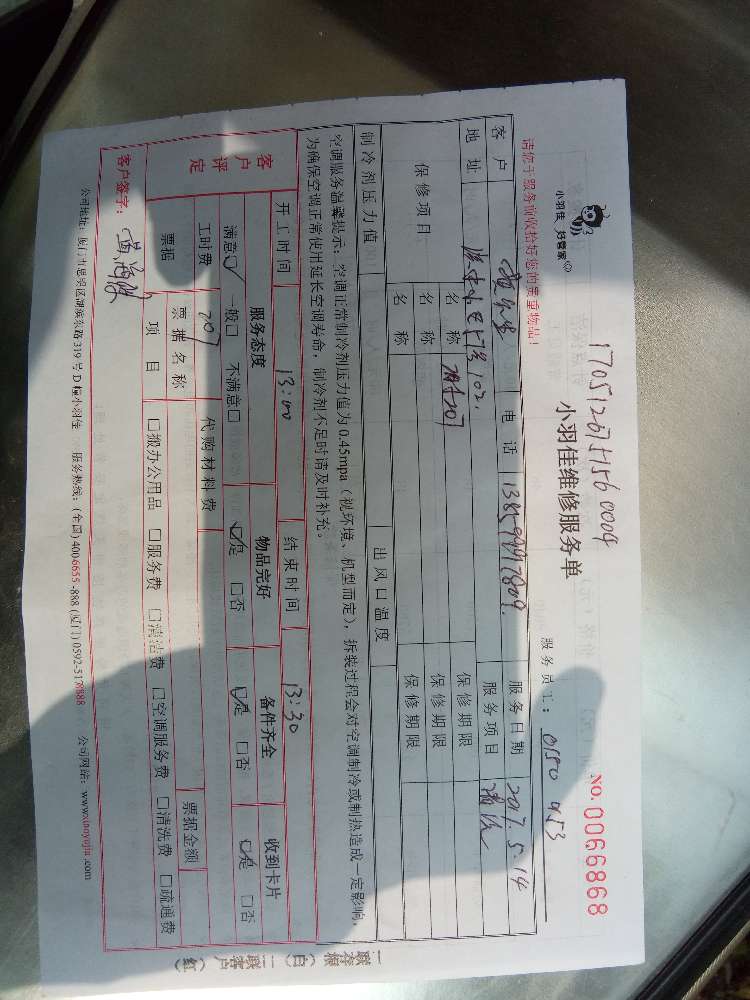 小羽佳 好管家
170512675156 0004
小羽佳维修服务单
NO. 0066868
请您于服务前收拾好您的贵重物品!
服务员工: 0150 453
客户 电话 服务日期 2017.5.14
地址 102. 服务项目 清洗
保修项目 名称 207 保修期限
名称 保修期限
名称 保修期限
制冷剂压力值 出风口温度
空调服务温馨提示:空调正常制冷剂压力值为0.45mpa(视环境、机型而定),拆装过程会对空调制冷或制热造成一定影响,
为确保空调正常使用延长空调寿命,制冷剂不足时请及时补充。
开工时间 13:00 结束时间 13:30
客户评定 服务态度 物品完好 备件齐全 收到卡片
满意☑ 一般□ 不满意□ ☑是 □否 ☑是 □否 ☑是 □否
工时费 207 代购材料费
票据 票据名称 票据金额
项目 □搬办公用品 □服务费 □清洁费 □空调服务费 □清洗费 □疏通费
客户签字:
公司地址:厦门市思明区湖滨东路319号D幢小羽佳 服务热线:(全国)4006655-888(厦门)0592-5177888 公司网站:www.xiaoyujia.com
一联存根(白)二联客户(红)